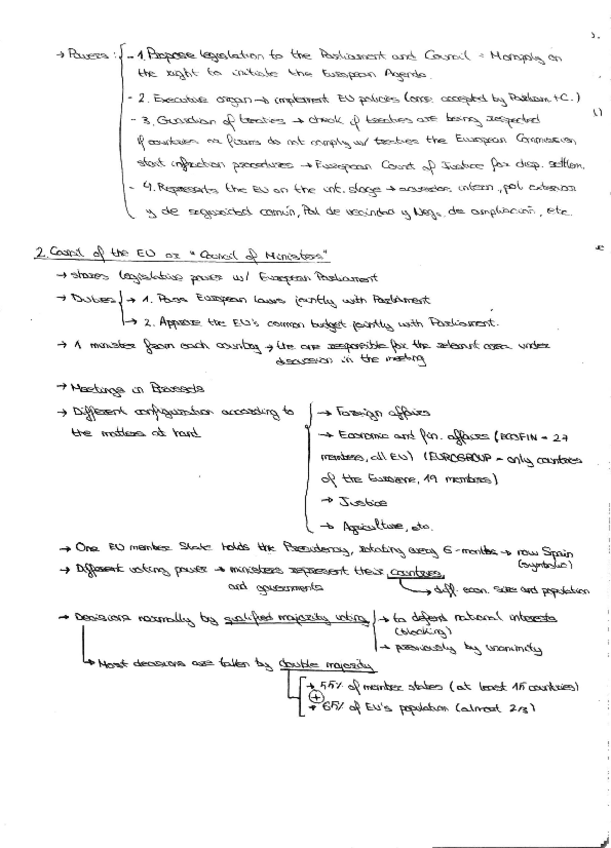 → Powers: - 1. Propose legislation to the Parliament and Council = Monopoly on
the right to initiate the European Agenda.
- 2. Executive organ → implement EU policies (once accepted by Parliam + C.)
- 3. Guardian of treaties → check if treaties are being respected
if countries or firms do not comply w/ treaties the European Commission
start infraction procedures → European Court of Justice for disp. settlem.
- 4. Represents the EU on the int. stage → acuerdos intern., pol. exterior
y de seguridad común, Pol. de vecindad y Neg. de ampliación, etc.
2. Council of the EU or "Council of Ministers"
→ shares legislative power w/ European Parliament
→ Duties → 1. Pass European laws jointly with Parliament
→ 2. Approve the EU's common budget jointly with Parliament.
→ 1 minister from each country → the one responsible for the relevant area under
discussion in the meeting
→ Meetings in Brussels
→ Different configuration according to
the matters at hand
→ Foreign affairs
→ Economic and fin. affairs (ECOFIN = 27
members, all EU) (EUROGROUP = only countries
of the Eurozone, 19 members)
→ Justice
→ Agriculture, etc.
→ One EU member State holds the Presidency, rotating every 6-months → now Spain
(symbolic)
→ Different voting power → ministers represent their countries
and governments
→ diff. econ. size and population
→ Decisions normally by qualified majority voting → to defend national interests
(blocking)
→ previously by unanimity
→ Most decisions are taken by double majority
→ 55% of member states (at least 15 countries)
+
→ 65% of EU's population (almost 2/3)